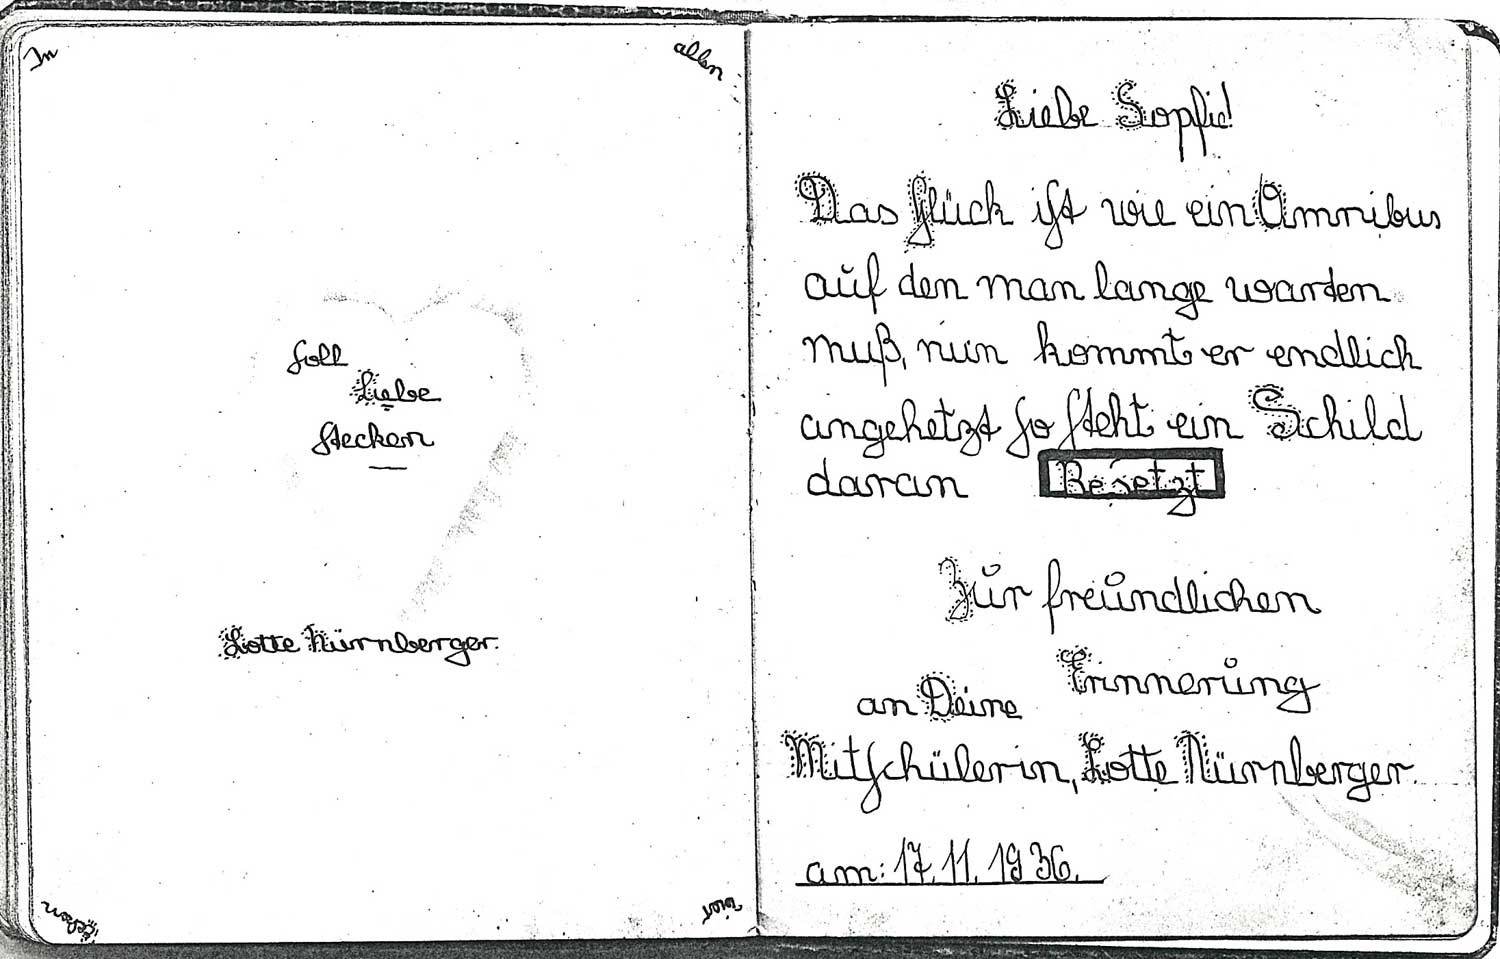 In
allen
soll
Liebe
stecken
Lotte Nürnberger.
vier
Ecken
Liebe Sophie!
Das Glück ist wie ein Omnibus
auf den man lange warten
muß, nun kommt er endlich
angehetzt so steht ein Schild
daran Besetzt
Zur freundlichen
Erinnerung
an Deine
Mitschülerin, Lotte Nürnberger.
am: 17. 11. 1936.